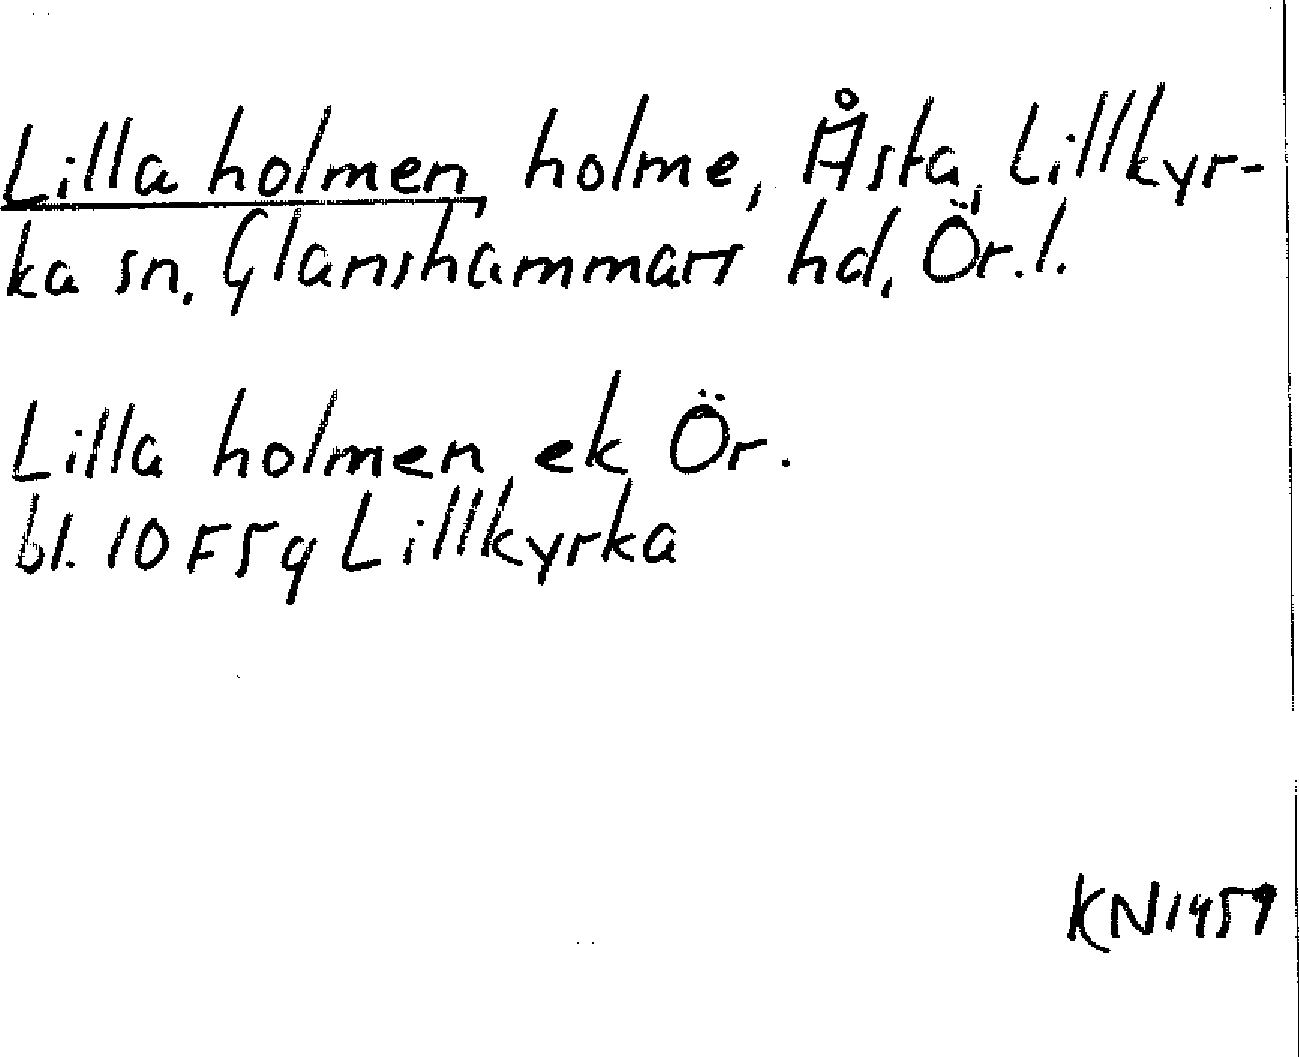 Lilla holmen, holme, Åsta, Lillkyr-
ka sn, Glanshammars hd, Ör.l.
Lilla holmen ek Ör.
bl. 10 F 5 g Lillkyrka
KN 1959